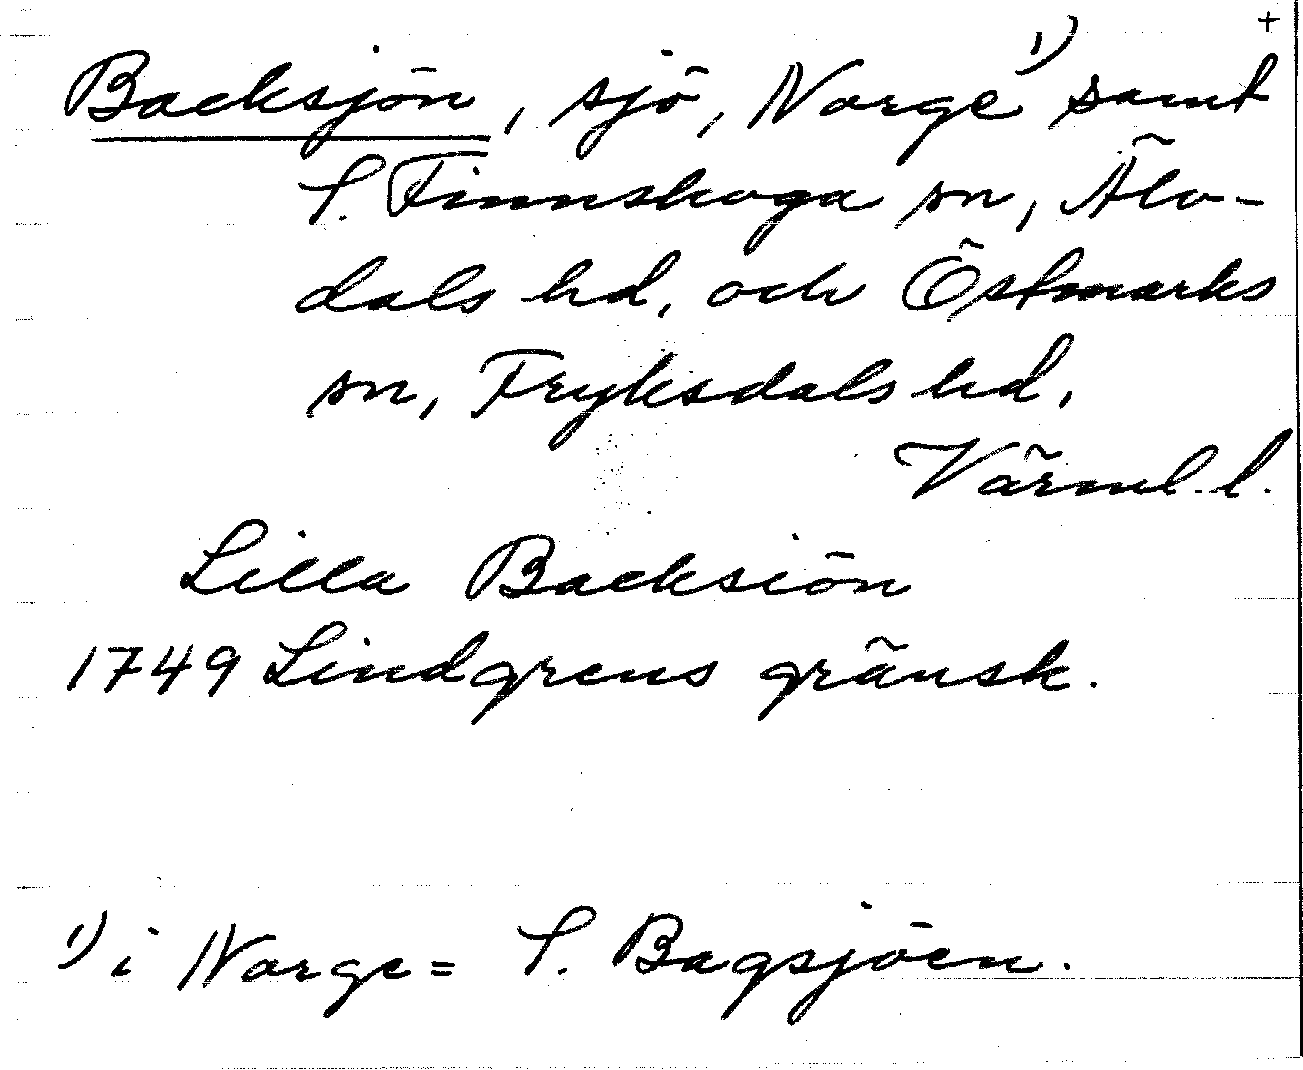 +
Backsjön, sjö, Norge 1) samt
S. Finnskoga sn, Älv-
dals hd, och Östmarks
sn, Fryksdals hd,
Värml. l.
Lilla Backsiön
1749 Lindgrens gränsk.
1) i Norge = S. Bagsjöen.